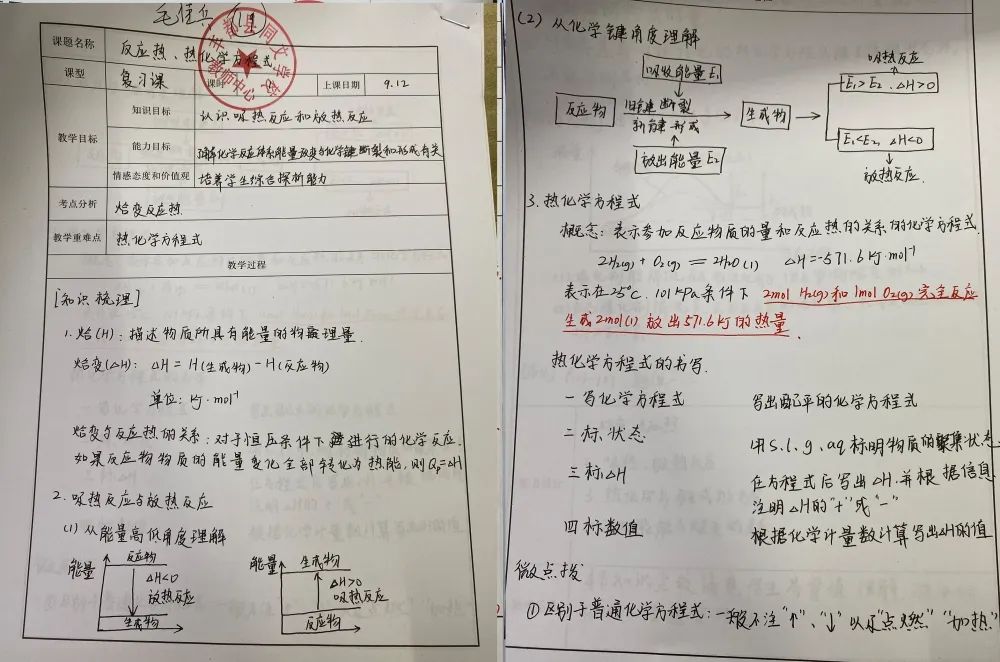 课题名称 反应热、热化学方程式
课型 复习课 课时 上课日期 9.12
教学目标
知识目标 认识吸热反应和放热反应
能力目标 理解化学反应体系能量改变与化学键断裂和形成有关
情感态度和价值观 培养学生综合探析能力
考点分析 焓变反应热
教学重难点 热化学方程式
教学过程
[知识梳理]
1.焓(H):描述物质所具有能量的物理量
焓变(△H): △H = H(生成物)-H(反应物)
单位: kJ·mol⁻¹
焓变与反应热的关系:对于恒压条件下进行的化学反应,
如果反应物物质的能量变化全部转化为热能,则Qp=△H
2.吸热反应与放热反应
(1)从能量高低角度理解
能量 反应物 △H<0 放热反应 生成物
能量 生成物 △H>0 吸热反应 反应物
(2)从化学键角度理解
吸收能量E₁
反应物 旧键断裂 新键形成 生成物
放出能量E₂
吸热反应
E₁>E₂.△H>0
E₁<E₂, △H<0
放热反应.
3.热化学方程式
概念:表示参加反应物质的量和反应热的关系的化学方程式
2H₂(g) + O₂(g) = 2H₂O(l) △H=-571.6 kJ·mol⁻¹
表示在25℃. 101kPa条件下 2mol H₂(g)和1mol O₂(g)完全反应
生成2mol(l)放出571.6kJ的热量.
热化学方程式的书写.
一写化学方程式 写出配平的化学方程式
二标状态 用s.l.g.aq标明物质的聚集状态.
三标△H 在方程式后写出△H.并根据信息
注明△H的"+"或"-"
四标数值 根据化学计量数计算写出△H的值
微点拨
①区别于普通化学方程式:一般不注"↑"、"↓"以及"点燃""加热"